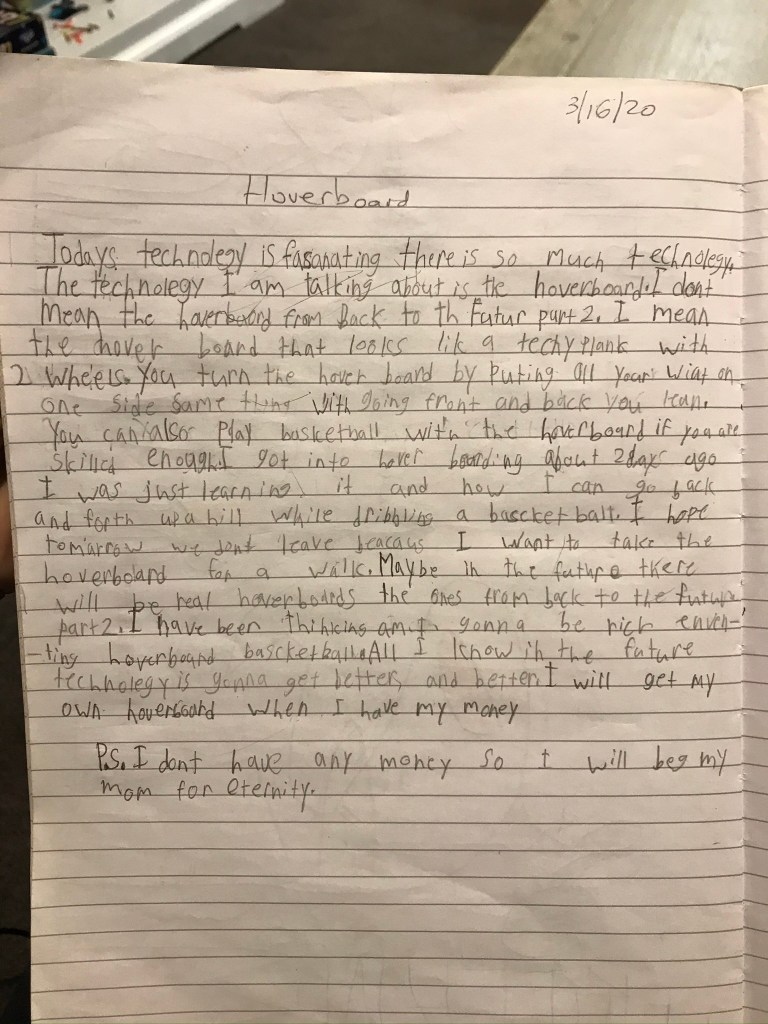 3/16/20
Hoverboard
Todays technolegy is fasanating there is so much technolegy.
The technolegy I am talking about is the hoverboard. I dont
mean the haverboord from Back to th Futur part 2. I mean
the hover board that looks lik a techy plank with
2 wheels. You turn the hover board by puting all your wiat on
one side same thing with going front and back you lean.
You can also play basketball with the hoverboard if you are
skilled enough. I got into hover boarding about 2 days ago
I was just learning it and how I can go back
and forth up a hill while dribbling a bascket ball. I hope
tomarrow we dont leave beacaus I want to take the
hoverboard for a walk. Maybe in the future there
will be real hoverboards the ones from back to the future
part 2. I have been thinking am I gonna be rich enven-
-ting hoverboard bascketball. All I know in the future
technolegy is gonna get better, and better. I will get my
own hoverboard when I have my money
P.S. I dont have any money so I will beg my
mom for eternity.